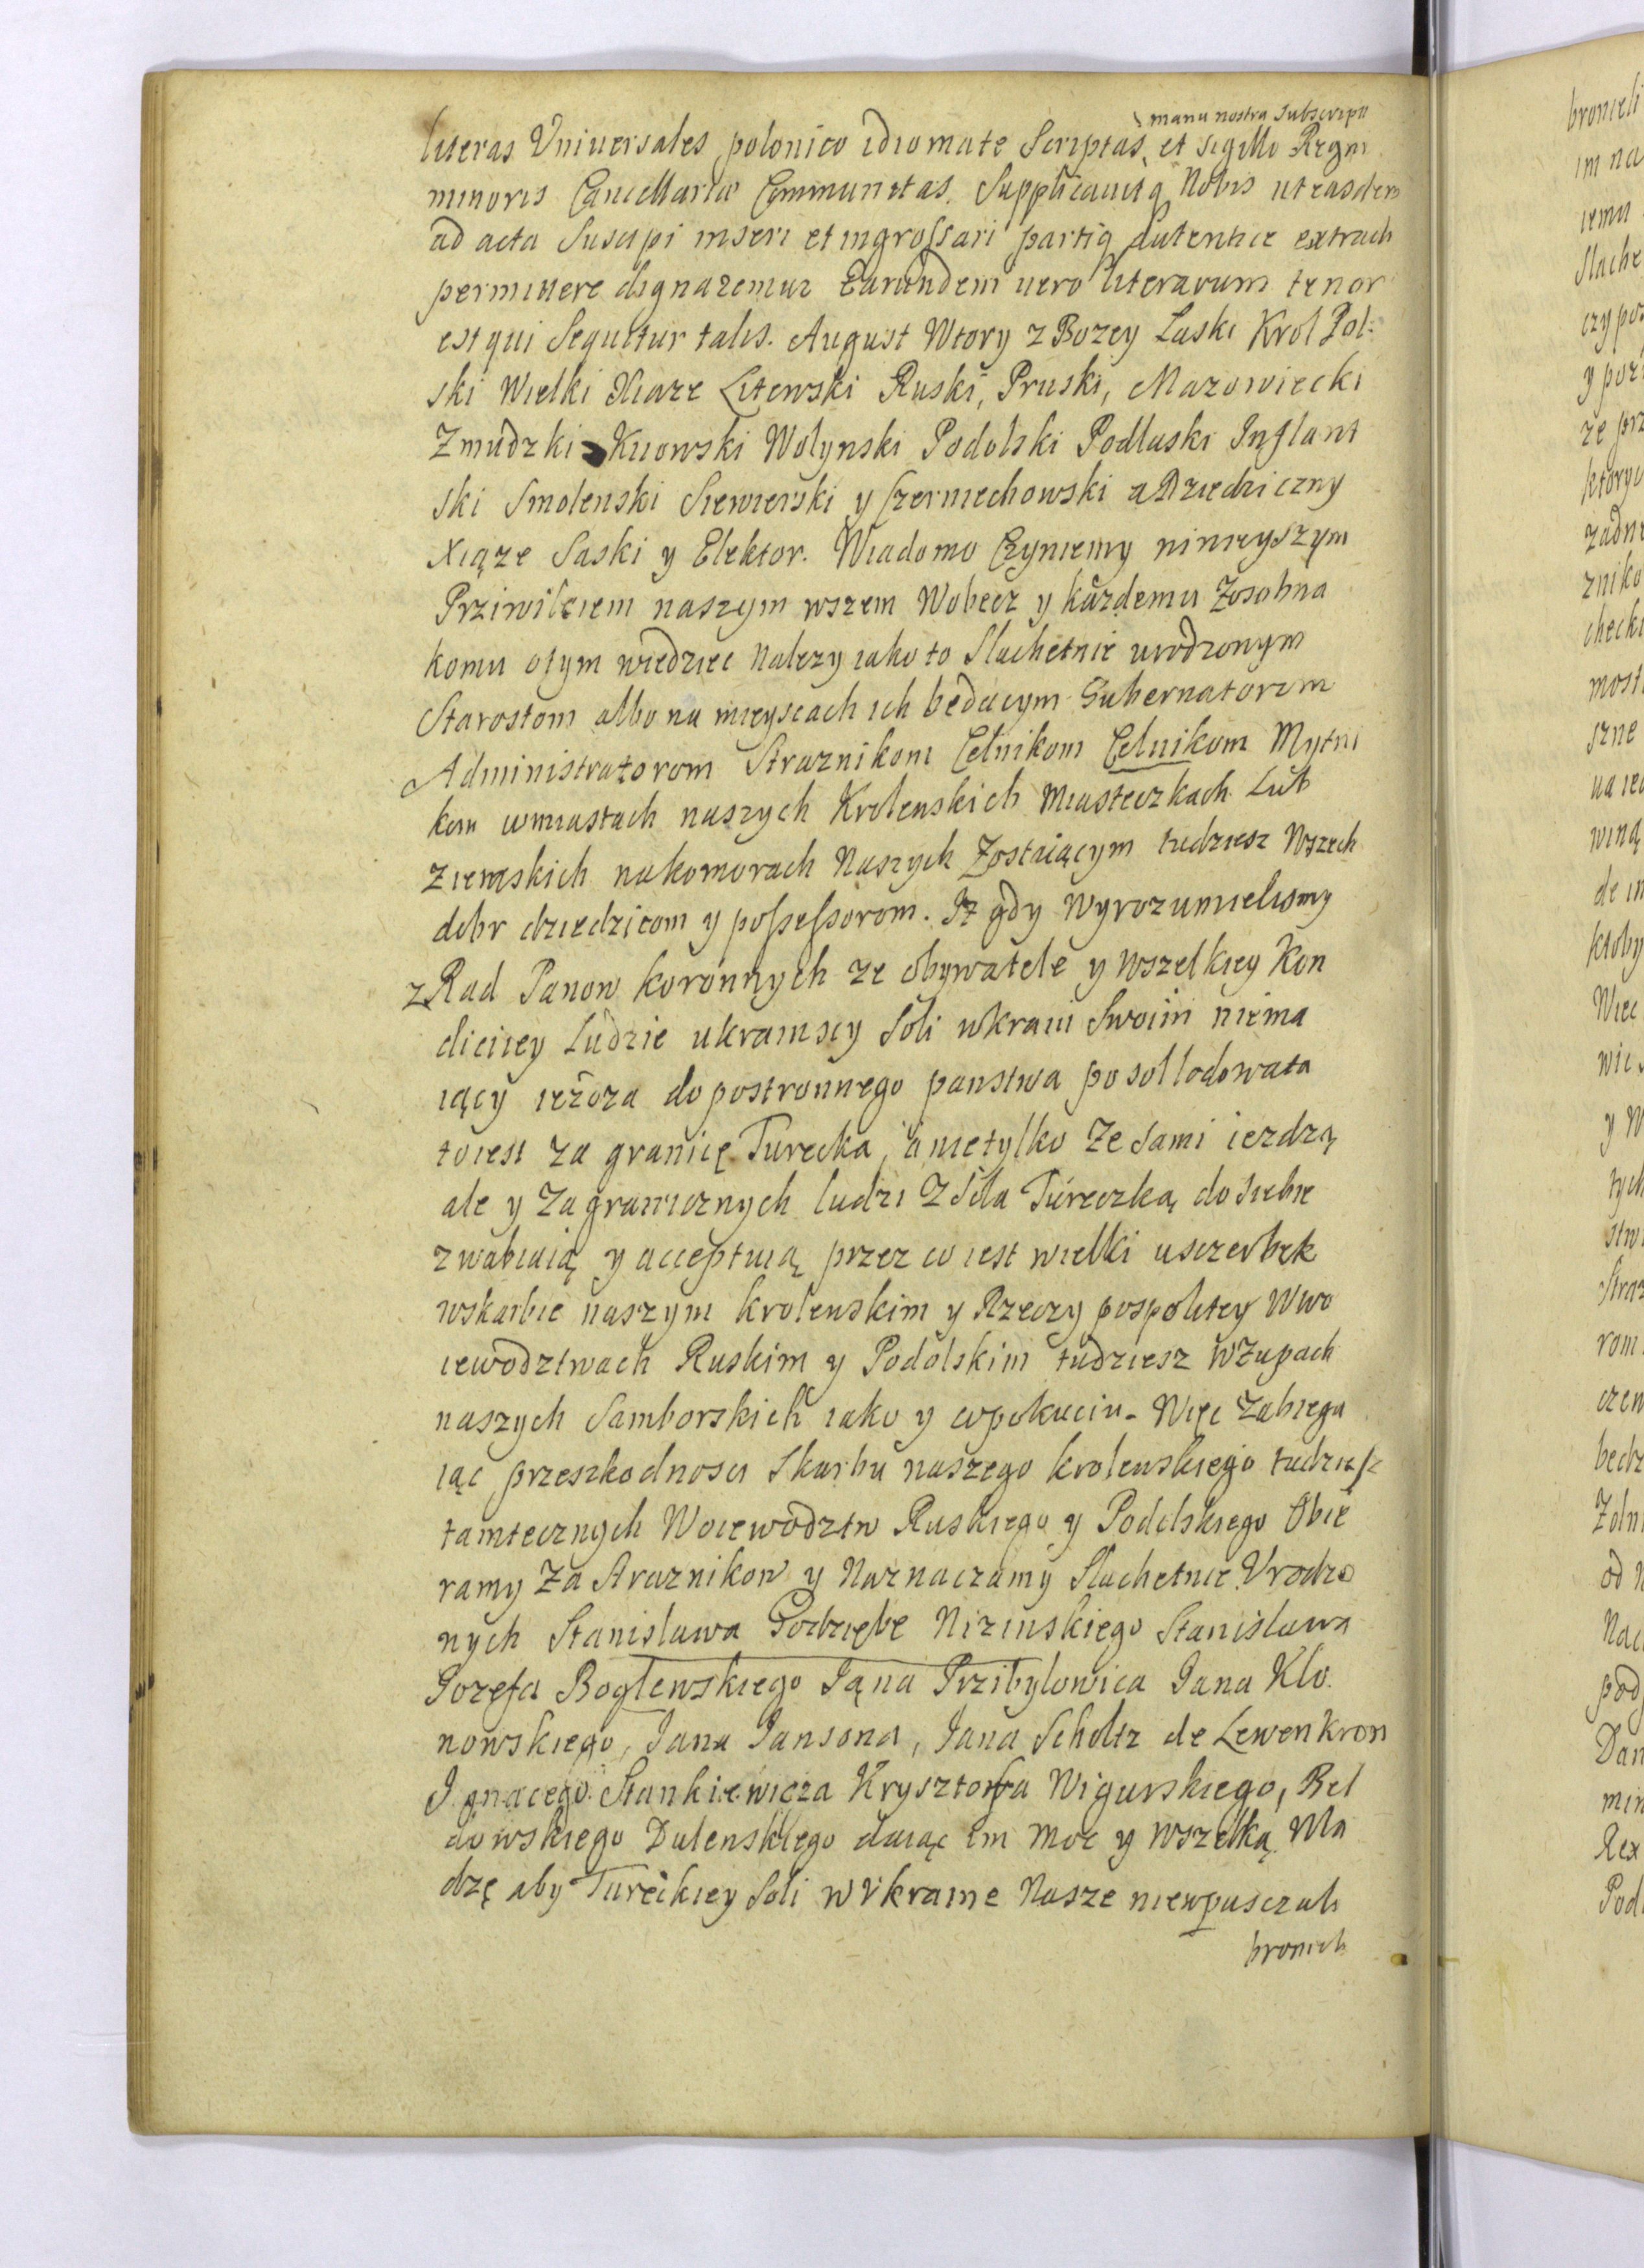 manu nostra Subscripta
literas Uniuersales polonico idiomate Scriptas, et sigillo Regni
minoris Cancellariæ Communitas. Supplicauitq Nobis ut easdem
ad acta Suscipi inseri et ingrossari partiq Autentice extrach
permittere dignaremur Earundem uero literarum tenor
est qui Sequitur talis. August Wtory z Bozey Laski Krol Pol:
ski Wielki Xiaze Litewski Ruski, Pruski, Mazowiecki
Zmudzki Kiiowski Wolynski Podolski Podlaski Inflant
ski Smolenski Siewierski y Czerniechowski a Dziedziczny
Xiąze Saski y Elektor. Wiadomo Czyniemy ninieyszym
Prziwileiem naszym wszem Wobecz y każdemu Zosobna
komu otym wiedziec Nalezy iako to Slachetnie urodzonym
Starostom albo na mieyscach ich będącym Gubernatorom
Administratorom Straznikom Celnikom Celnikom Mytni
kom wmiastach naszych Krolewskich Miasteczkach Lub
Ziemskich nakomorach Naszych Zostaiącym tudziesz Wszech
dobr dziedzicom y possessorom. Iz gdy Wyrozumielismy
z Rad Panow koronnych ze obywatele y wszelkiey Kon
diciiey Ludzie ukrainscy Soli wkraiu Swoim niema
iący iezdza do postronnego panstwa po sol lodowata
toiest za granicę Turecka, a nietylko Ze Sami iezdzą
ale y Zagranicznych ludzi Z Solą Tureczką do siebie
zwabiaią y acceptuią przez co iest wielki uszczerbek
wskarbie naszym krolewskim y Rzeczy pospolitey Wwo
iewodztwach Ruskim y Podolskim tudziesz wZupach
naszych Samborskich iako y wpokuciu. Więc Zabiega
iąc przeszkodnosci Skarbu naszego krolewskiego tudziesz
tamtecznych Woiewodztw Ruskiego y Podolskiego Obie
ramy Za Straznikow y Naznaczamy Slachetnie Urodzo
nych Stanislawa Godziębę Nizinskiego Stanislawa
Jozefa Boglewskiego Jana Przibylowica Jana Klo
nowskiego, Jana Jansona, Jana Scholtz de Lewenkron
Ignacego Stankiewicza Krysztoffa Wigurskiego, Bel
dowskiego Dulenskiego daiąc im Moc y wszelką Wla
dzę aby Tureckiey Soli w Vkraine Nasze niewpuszczali
bronieli